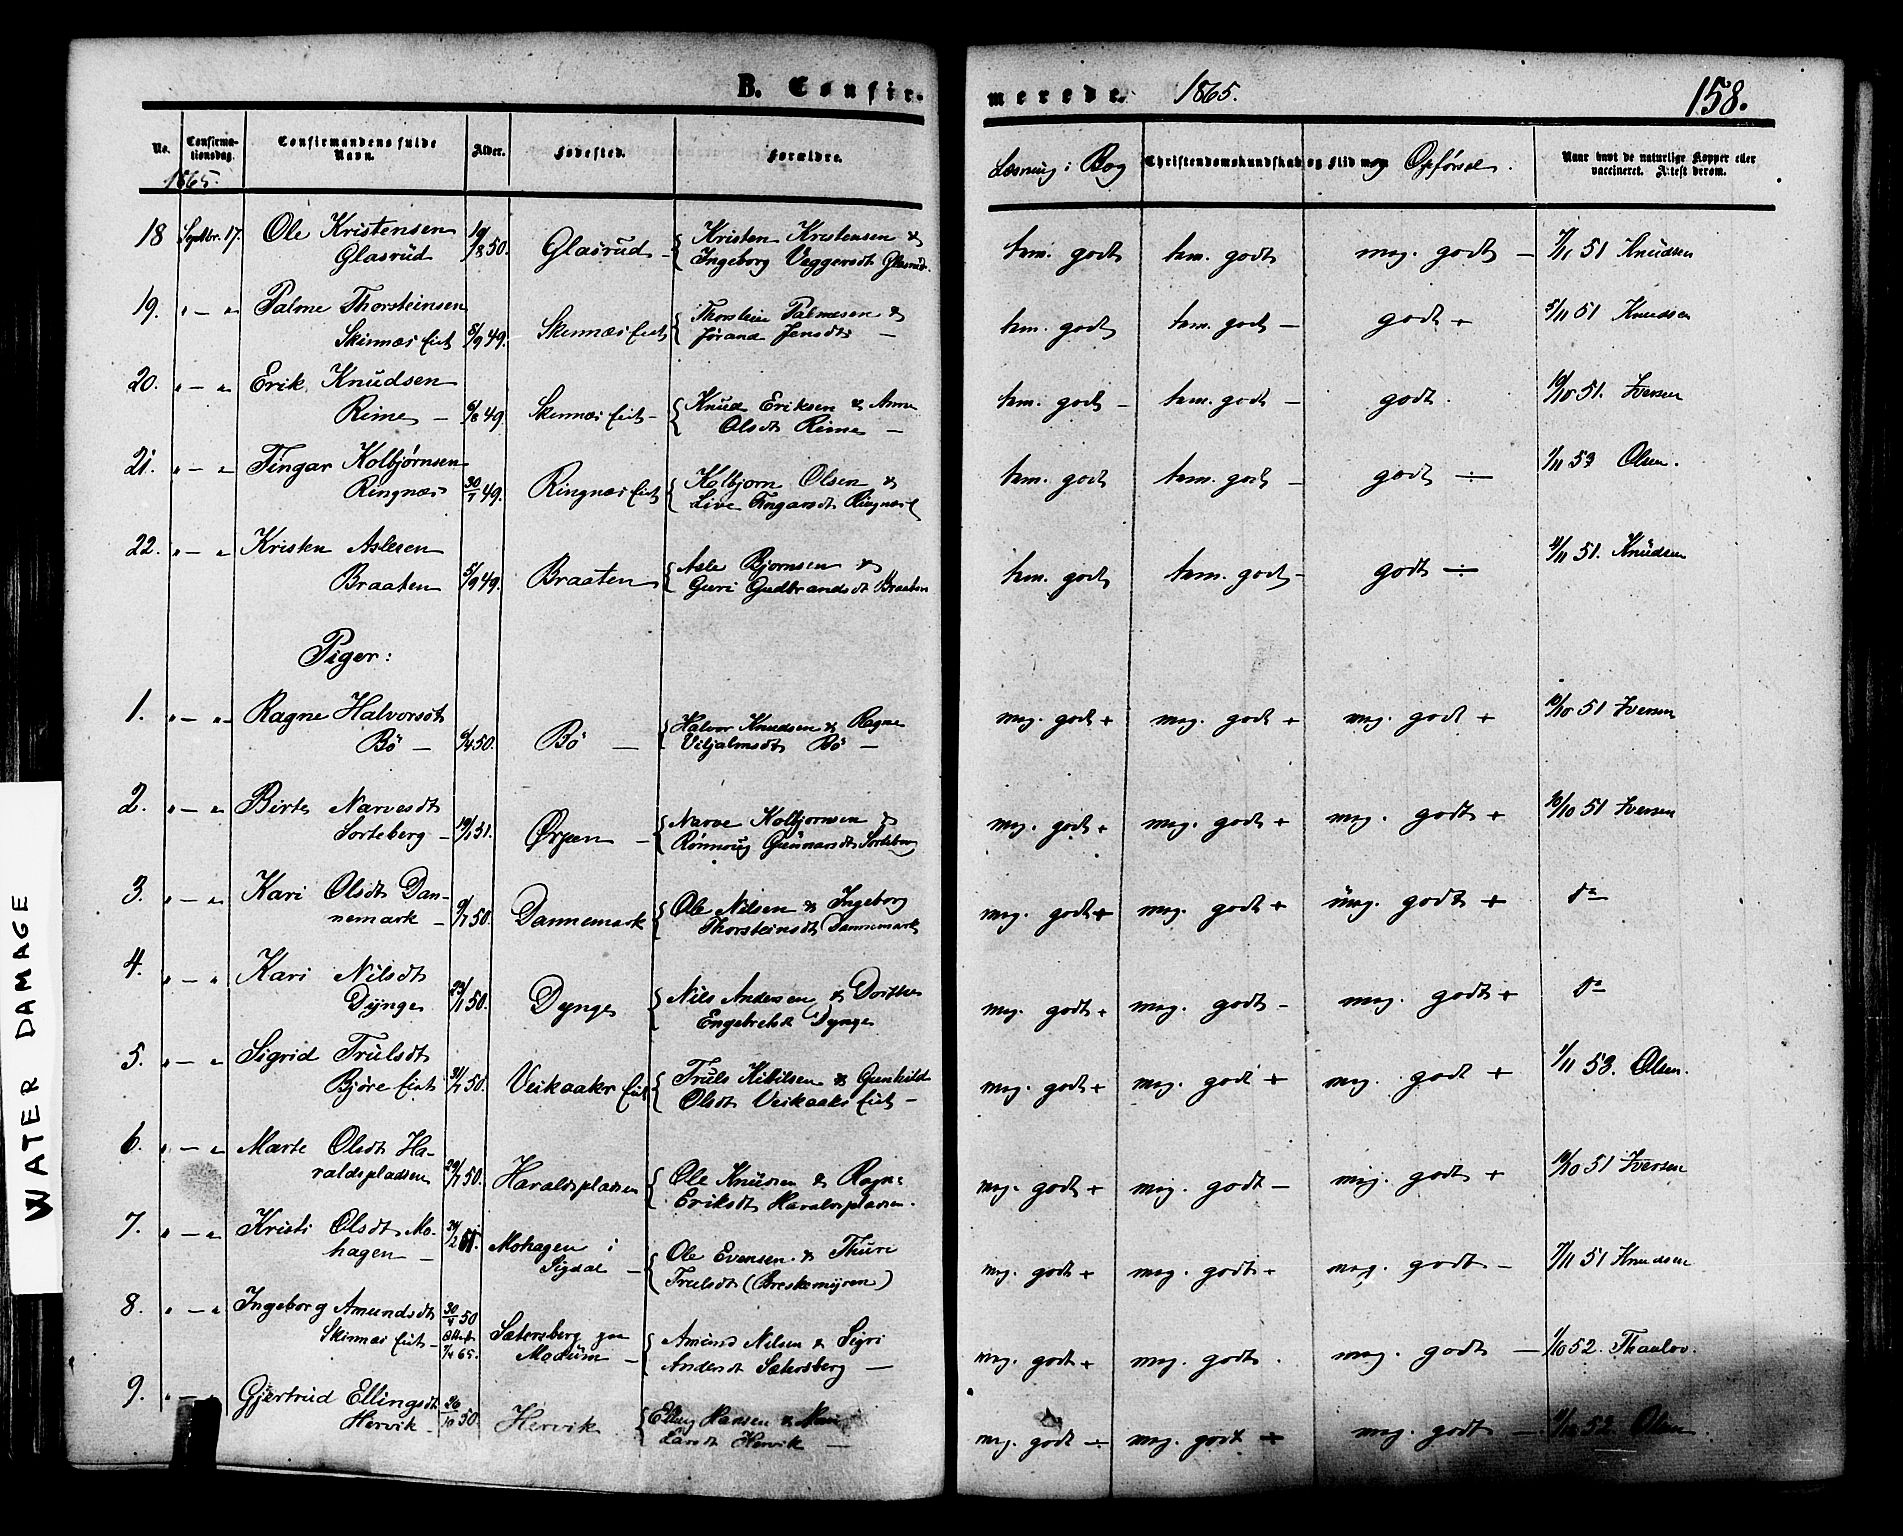 B. Confir-
merede. 1865. 158.
No. Confirma-
tionsdag. Confirmandens fulde
Navn. Alder. Fødested. Forældre. Læsning i Bog Christendomskundskab og Flid Opførsel. Naar havt de naturlige Kopper eller
vaccineret. Attest derom.
1865.
18 Septbr. 17. Ole Kristensen
Glasrud 19/8 50. Glasrud - Kristen Kristensen &
Ingeborg Veggersdt Glasrud. tem. godt tem. godt meg. godt - 7/11 51 Knudsen
19. " - " Palme Thorsteinsen
Skinnæs Eiet 5/9 49. Skinnæs Eiet Thorstein Palmesen &
Jørand Jensdt - tem. godt tem. godt - godt + 5/11 51 Knudsen
20. " - " Erik Knudsen
Reime - 6/8 49. Skinnæs Eiet - Knud Eriksen & Anne
Olsdt Reime - tem. godt - tem. godt - godt. 10/10 51. Iversen
21. " - " Fingar Kolbjørnsen
Ringnæs 30/5 49. Ringnæs Eiet Kolbjørn Olsen &
Live Fingarsdt Ringnæs E tem. godt tem. godt - godt ÷ 1/11 53 Olsen.
22. " - " Kristen Aslesen
Braaten 5/9 49. Braaten Asle Bjørnsen &
Guri Gudbrandsdt Braaten tem. godt tem. godt - godt ÷ 11/11 51. Knudsen
Piger:
1. " - " Ragne Halvorsdt
Bö - 6/4 50. Bö - Halvor Knudsen & Ragne
Viljalmsdt Bö - meg. godt + meg. godt + meg. godt + 10/10 51 Iversen
2. " - " Birte Narvesdt
Sorteberg - 19/1 51. Ørpen - Narve Kolbjørnsen &
Rønnoug Gunnarsdt Sorteberg meg. godt + meg. godt + meg. godt + 10/10 51 Iversen
3. " - " Kari Olsdt Dan-
nemark - 9/7 50. Dannemark Ole Nilsen & Ingeborg
Thorsteinsdt Dannemark meg. godt + meg. godt + meg. godt + do
4. " - " Kari Nilsdt
Dynge 23/1 50. Dynge Nils Andersen & Dorthe
Engebretsdt Dynge meg. godt + meg. godt - meg. godt + do
5. " - " Sigrid Trulsdt
Bjøre Eiet 31/7 50. Veikaaker Eiet Truls Kittilsen & Gunhild
Olsdt Veikaaker Eiet - meg. godt + meg. godt + meg. godt + 1/11 53. Olsen.
6. " - " Marte Olsdt Ha-
raldspladsen 29/7 50. Haraldspladsen Ole Knudsen & Ragne
Eriksdt Haraldspladsen. meg. godt + meg. godt - meg. godt + 10/10 51 Iversen
7. " - " Kristi Olsdt Mo-
hagen - 24/2 51. Mohagen i
Sigdal - Ole Evensen & Thuri
Trulsdt (Breskemyren) meg. godt + meg. godt + meg. godt - 7/11 51 Knudsen
8. " - " Ingeborg Amundsdt
Skinnæs Eiet - 30/4 50
Attest
7/4 65. Sætersberg paa
Modum - Amund Nilsen & Sigri
Andersdt Sætersberg - meg. godt + meg. godt. meg. godt - 1/10 52. Thaulov.
9. " - " Gjertrud Ellingsdt
Hervik - 26/10 50. Hervik Elling Hansen &
Larsdt Hervik - meg. godt ÷ meg. godt + meg. godt - 52 Olsen
WATER DAMAGE